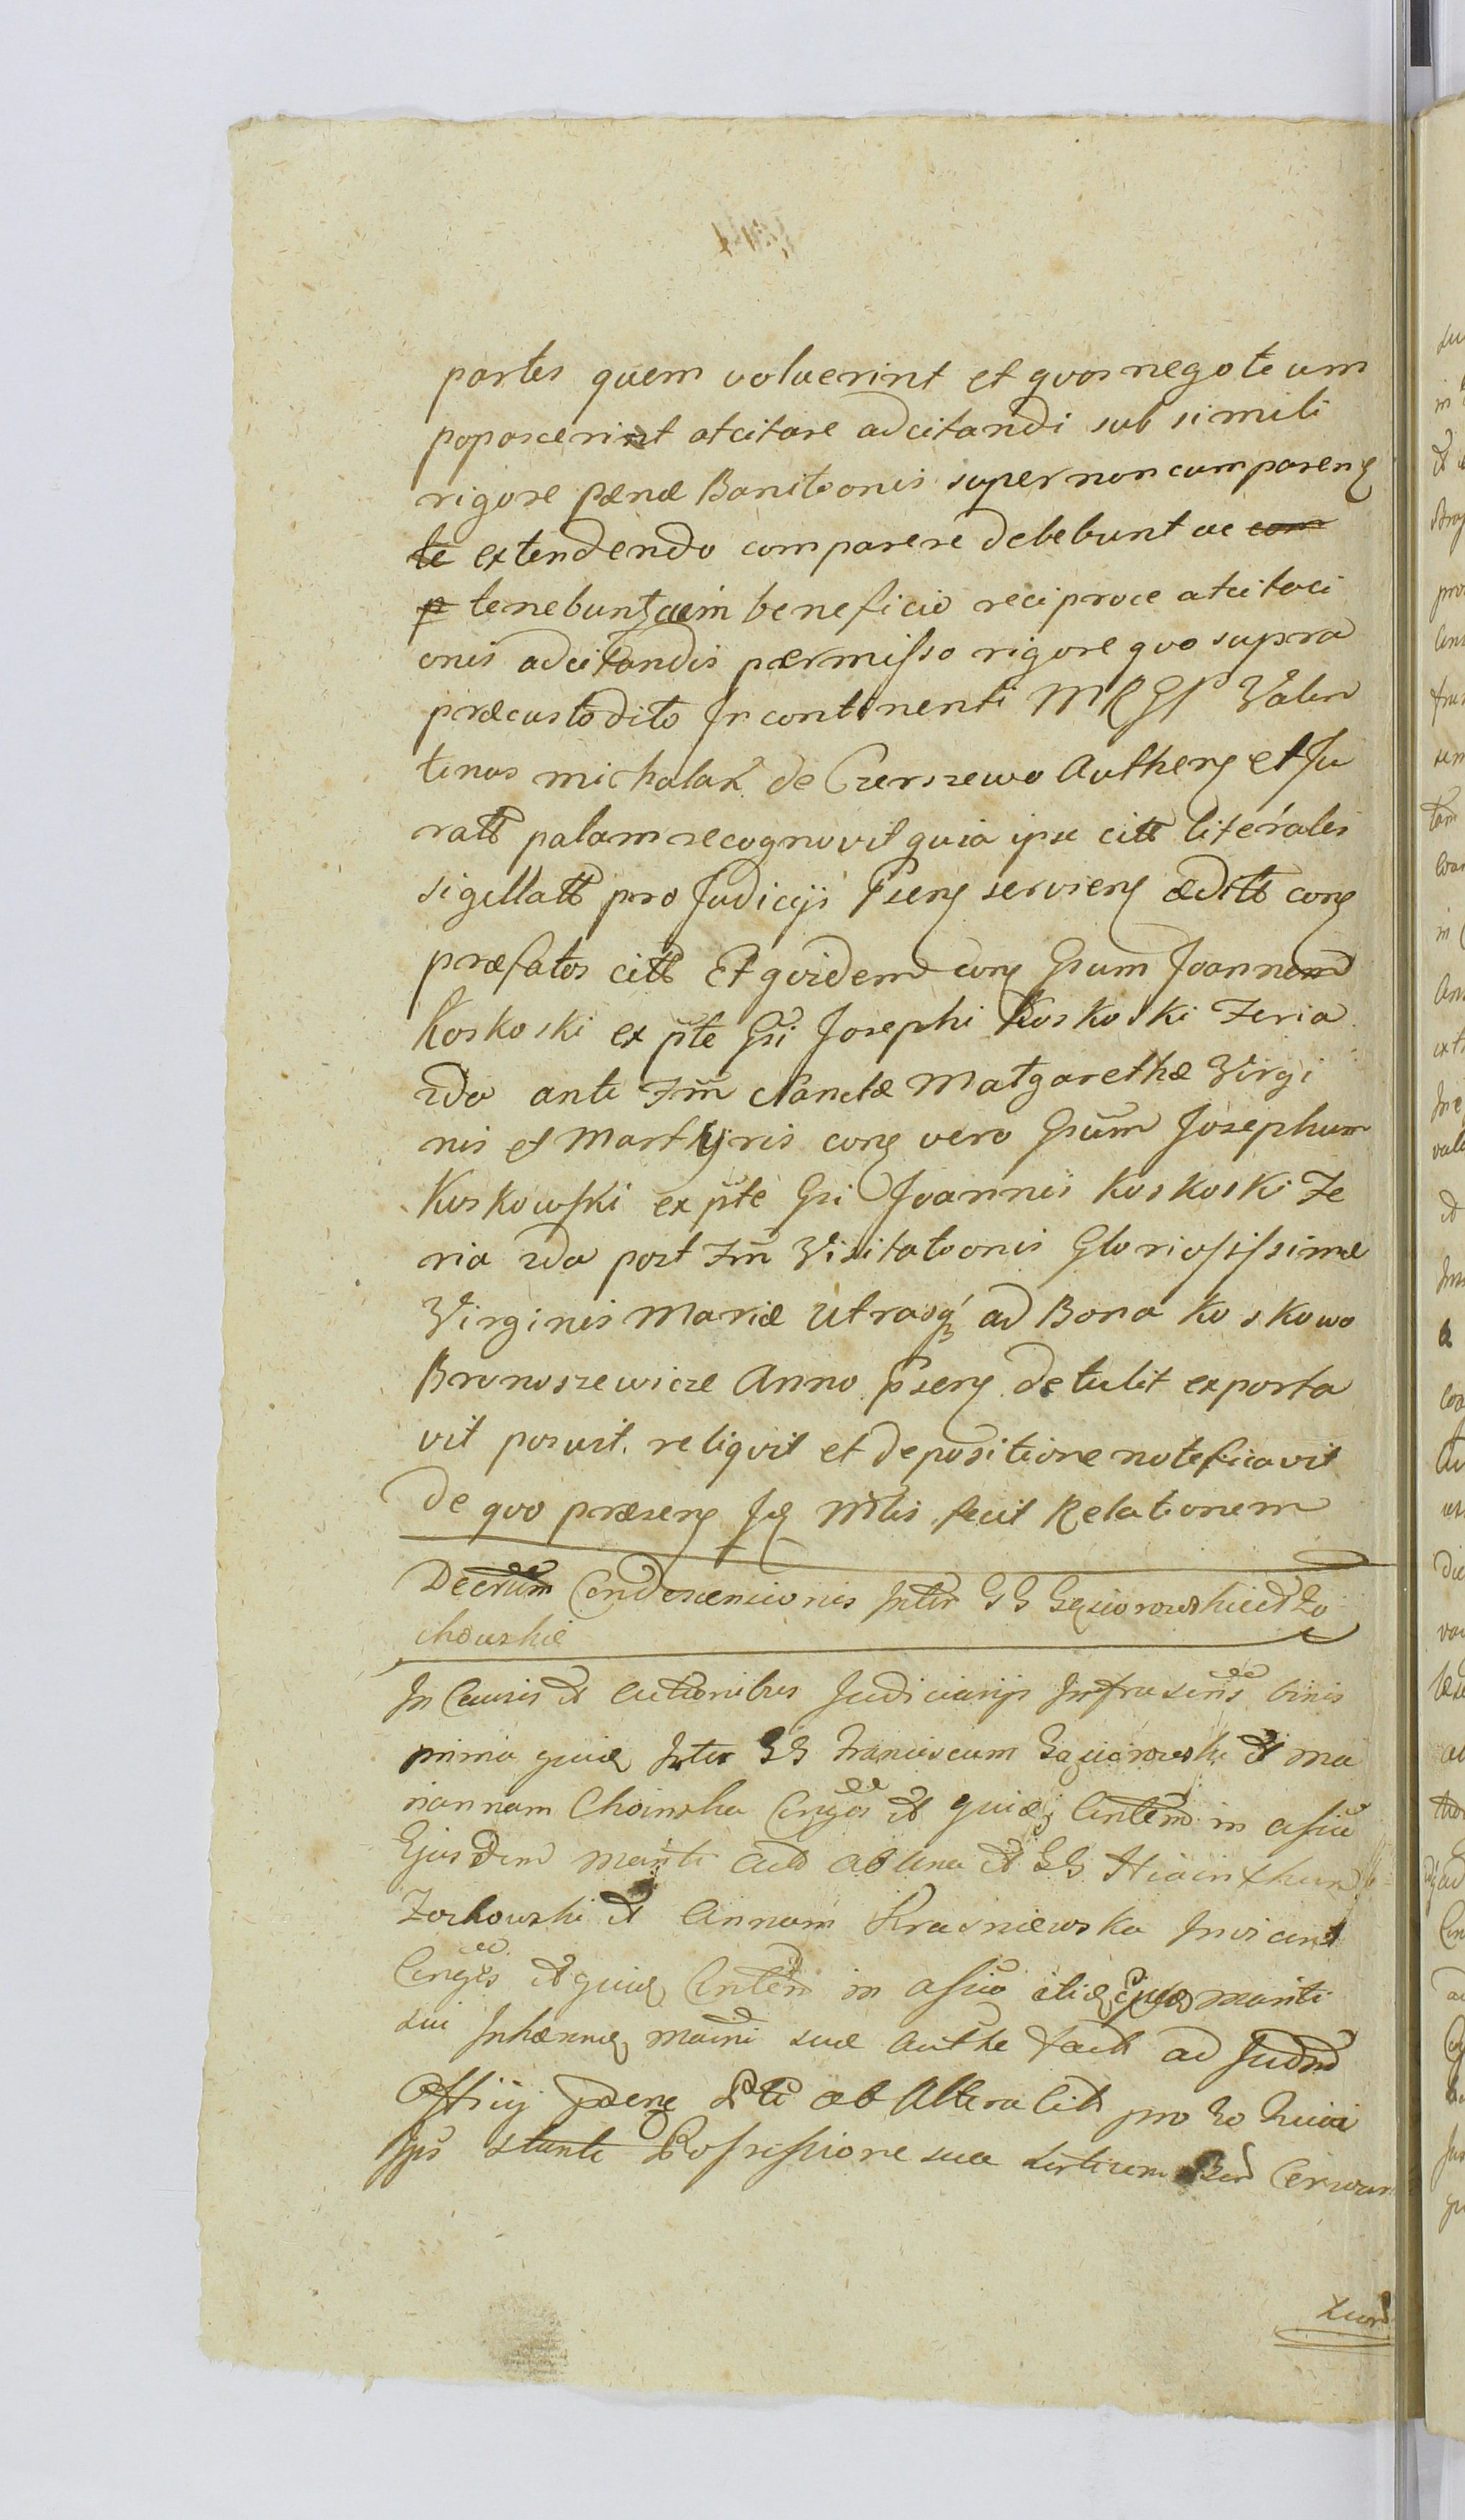 partes quem voluerint et quos negotium
poposcerint atcitare adcitandi sub simili
rigore pænæ Banitionis super non comparen
te extendendo comparere debebunt ac com
p tenebunt beneficio reciproce atcitaci
onis adcitandis præmisso rigore quo supra
præcustodito In continenti MRGP Valen
tinus michalak de Czerszewo Authen et Ju
ratt palam recognovit quia ipse citt literales
sigillatt pro Judicijs Psen servien ædítt con
præfatos citt Et quidem con Gsum Joannem
Koskoski ex pte Gsi Josephi Koskoski Feria
2da ante Fm Sanctæ Matgarethæ Virgi
nis et Marthyris con vero Gsum Josephum
Koskowski ex pte Gsi Joannis Koskoski Fe
ria 2da post Fm Visitationis Gloriosissimæ
Virginis Mariæ utrasq ad Bona Koskowo
Bronoszewicze Anno Psen detulit exporta
vit posuit reliqvit et depositione notificavit
de quo præsen Jd Mtis fecit Relationem
Decrum Condescensionis Inter GG Gąsiorowskie et Zo
chowskie
In Causis et Actionibus Judiciarijs Infrascris binis
prima quidę Inter GG Franciscum Gąsiorowski et Ma
riannam Choinska Conges et quidę Contem in assia
Ejusdem Mariti Act ab una et GG Hiacinthum
Zochowski et Annam Krasniewska Invicem
Conges et quidę Contem in assia mariti
sui Inhærenę maini suæ Authe fact ad Judm
Officij psens Pte ab Altera Citt pro eo Quia
Ipsi stante Possessione sua